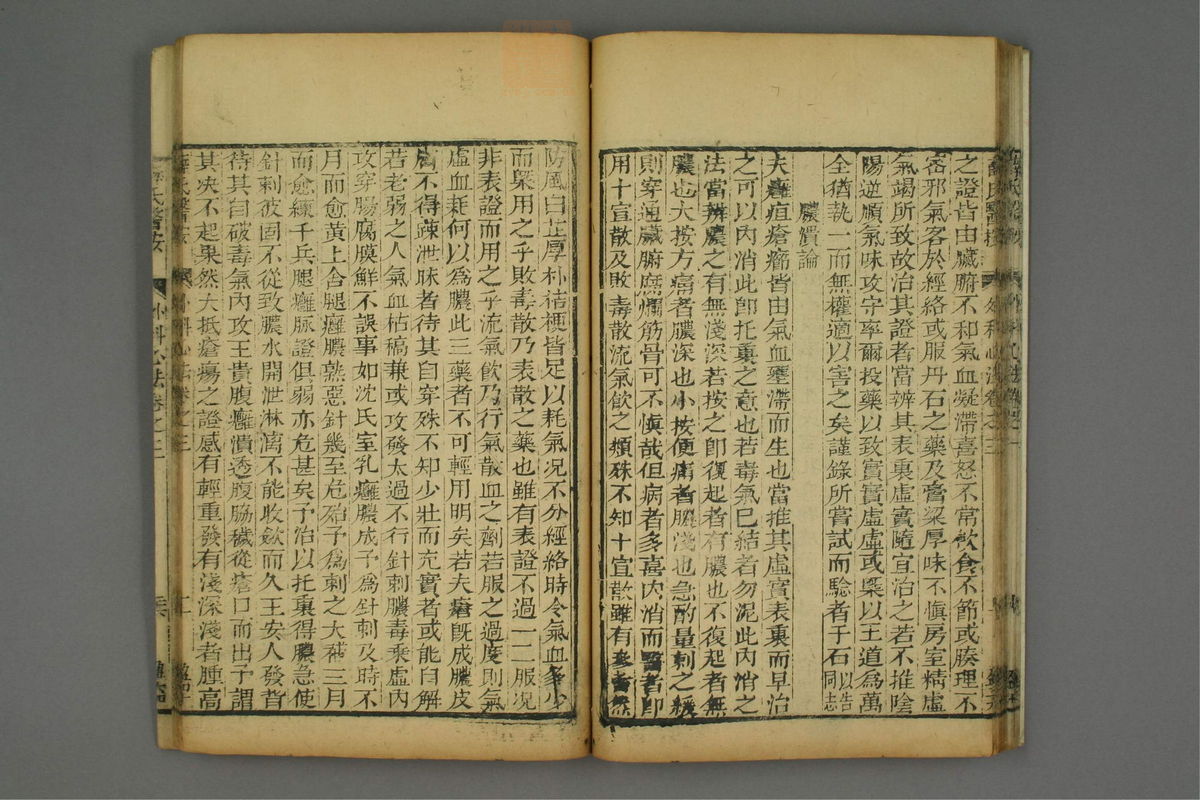 之證皆由臟腑不和氣血凝滯喜怒不常飲食不節或腠理不
密邪氣客於經絡或服丹石之藥及膏粱厚味不愼房室精虛
氣竭所致故治其證者當辨其表裏虛實隨宜治之若不推陰
陽逆順氣味攻守率爾投藥以致實實虛虛或槩以王道爲萬
全猶執一而無權適以害之矣謹錄所嘗試而驗者于石以告同志
膿潰論
夫癰疽瘡瘍皆由氣血壅滯而生也當推其虛實表裏而早治
之可以內消此卽托裏之意也若毒氣已結者勿泥此內消之
法當辨膿之有無淺深若按之卽復起者有膿也不復起者無
膿也大按方痛者膿深也小按便痛者膿淺也急酌量刺之緩
則穿通臟腑腐爛筋骨可不愼哉但病者多喜內消而醫者卽
用十宣散及敗毒散流氣飲之類殊不知十宣散雖有參耆然
防風白芷厚朴桔梗皆足以耗氣况不分經絡時令氣血多少
而槩用之乎敗毒散乃表散之藥也雖有表證不過一二服况
非表證而用之乎流氣飲乃行氣散血之劑若服之過度則氣
虛血耗何以爲膿此三藥者不可輕用明矣若夫瘡旣成膿皮
不得疎泄昧者待其自穿殊不知少壯而充實者或能自解
若老弱之人氣血枯稿兼或攻發太過不行針刺膿毒乘虛內
攻穿腸腐膜鮮不誤事如沈氏室乳癰膿成予爲針刺及時不
月而愈黃上舍腿癰膿熟惡針幾至危殆予爲刺之大補三月
而愈繆千兵腿癰脉證俱弱亦危甚矣予治以托裏得膿急使
針刺彼固不從致膿水開泄淋漓不能收斂而久王安人發背
待其自破毒氣內攻王貴腹癰潰透腹脇穢從瘡口而出予謂
其決不起果然大抵瘡瘍之證感有輕重發有淺深淺者腫高
薛氏醫按 外科心法卷之三